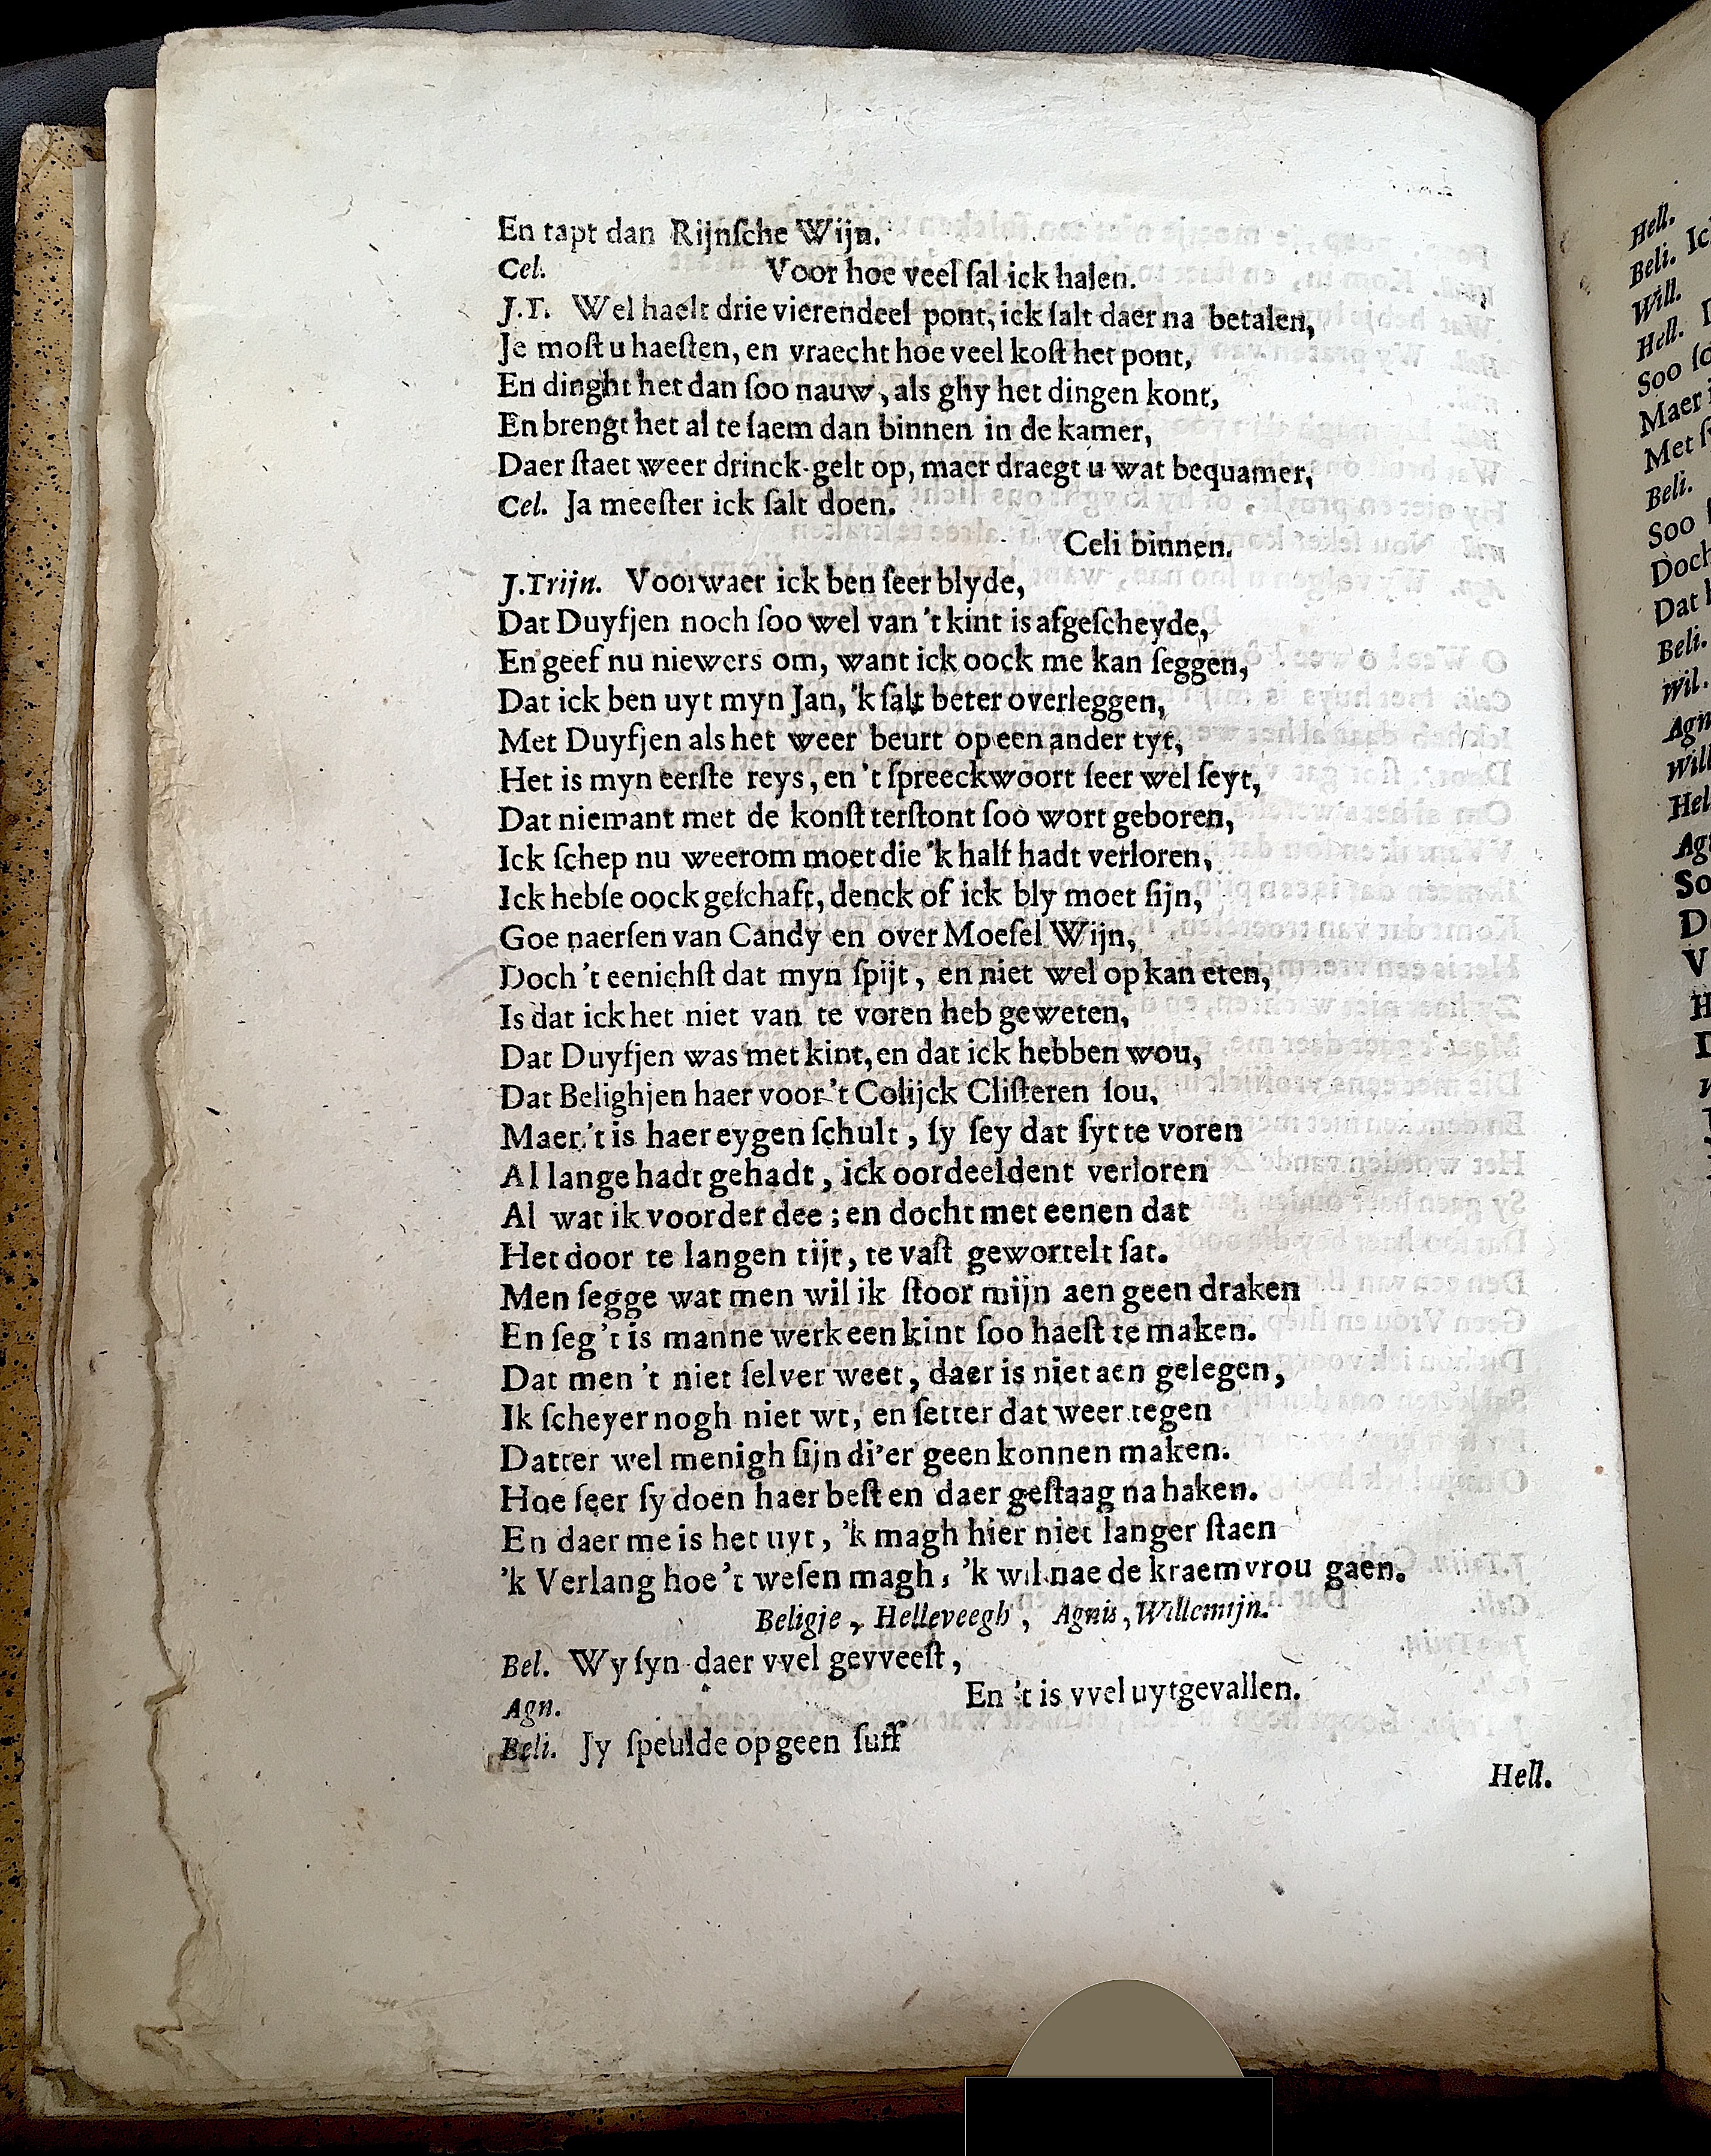 En tapt dan Rijnſche Wijn.
Cel. Voor hoe veel ſal ick halen.
J.T. Wel haelt drie vierendeel pont, ick ſalt daer na betalen,
Je moſt u haeſten, en vraecht hoe veel koſt het pont,
En dinght het dan ſoo nauw, als ghy het dingen kont,
En brengt het al te ſaem dan binnen in de kamer,
Daer ſtaet weer drinck-gelt op, maer draegt u wat bequamer,
Cel. Ja meeſter ick ſalt doen.
Celi binnen.
J.Trijn. Voorwaer ick ben ſeer blyde,
Dat Duyfjen noch ſoo wel van 't kint is afgeſcheyde,
En geef nu niewers om, want ick oock me kan ſeggen,
Dat ick ben uyt myn Jan, 'k ſalt beter overleggen,
Met Duyfjen als het weer beurt op een ander tyt,
Het is myn eerſte reys, en 't ſpreeckwoort ſeer wel ſeyt,
Dat niemant met de konſt terſtont ſoo wort geboren,
Ick ſchep nu weerom moet die 'k half hadt verloren,
Ick hebſe oock geſchaft, denck of ick bly moet ſijn,
Goe naerſen van Candy en over Moeſel Wijn,
Doch 't eenichſt dat myn ſpijt, en niet wel op kan eten,
Is dat ick het niet van te voren heb geweten,
Dat Duyfjen was met kint, en dat ick hebben wou,
Dat Belighjen haer voor 't Colijck Cliſteren ſou,
Maer 't is haer eygen ſchult, ſy ſey dat ſyt te voren
Al lange hadt gehadt, ick oordeeldent verloren
Al wat ik voorder dee; en docht met eenen dat
Het door te langen tijt, te vaſt gewortelt ſat.
Men ſegge wat men wil ik ſtoor mijn aen geen draken
En ſeg 't is manne werk een kint ſoo haeſt te maken.
Dat men 't niet ſelver weet, daer is niet aen gelegen,
Ik ſcheyer nogh niet wt, en ſetter dat weer tegen
Datter wel menigh ſijn di'er geen konnen maken.
Hoe ſeer ſy doen haer beſt en daer geſtaag na haken.
En daer me is het uyt, 'k magh hier niet langer ſtaen
'k Verlang hoe 't weſen magh, 'k wil nae de kraemvrou gaen.
Beligje, Helleveegh, Agnis, Willemijn.
Bel. Wy ſyn daer vvel gevveeſt,
Agn. En 't is vvel uytgevallen.
Beli. Jy ſpeulde op geen ſuff
Hell.
Hell.
Beli. Ic
Will.
Hell.
Soo ſo
Maer i
Met ſ
Beli.
Soo
Doch
Dat
Beli.
Wil.
Agn
Will
Hel
So